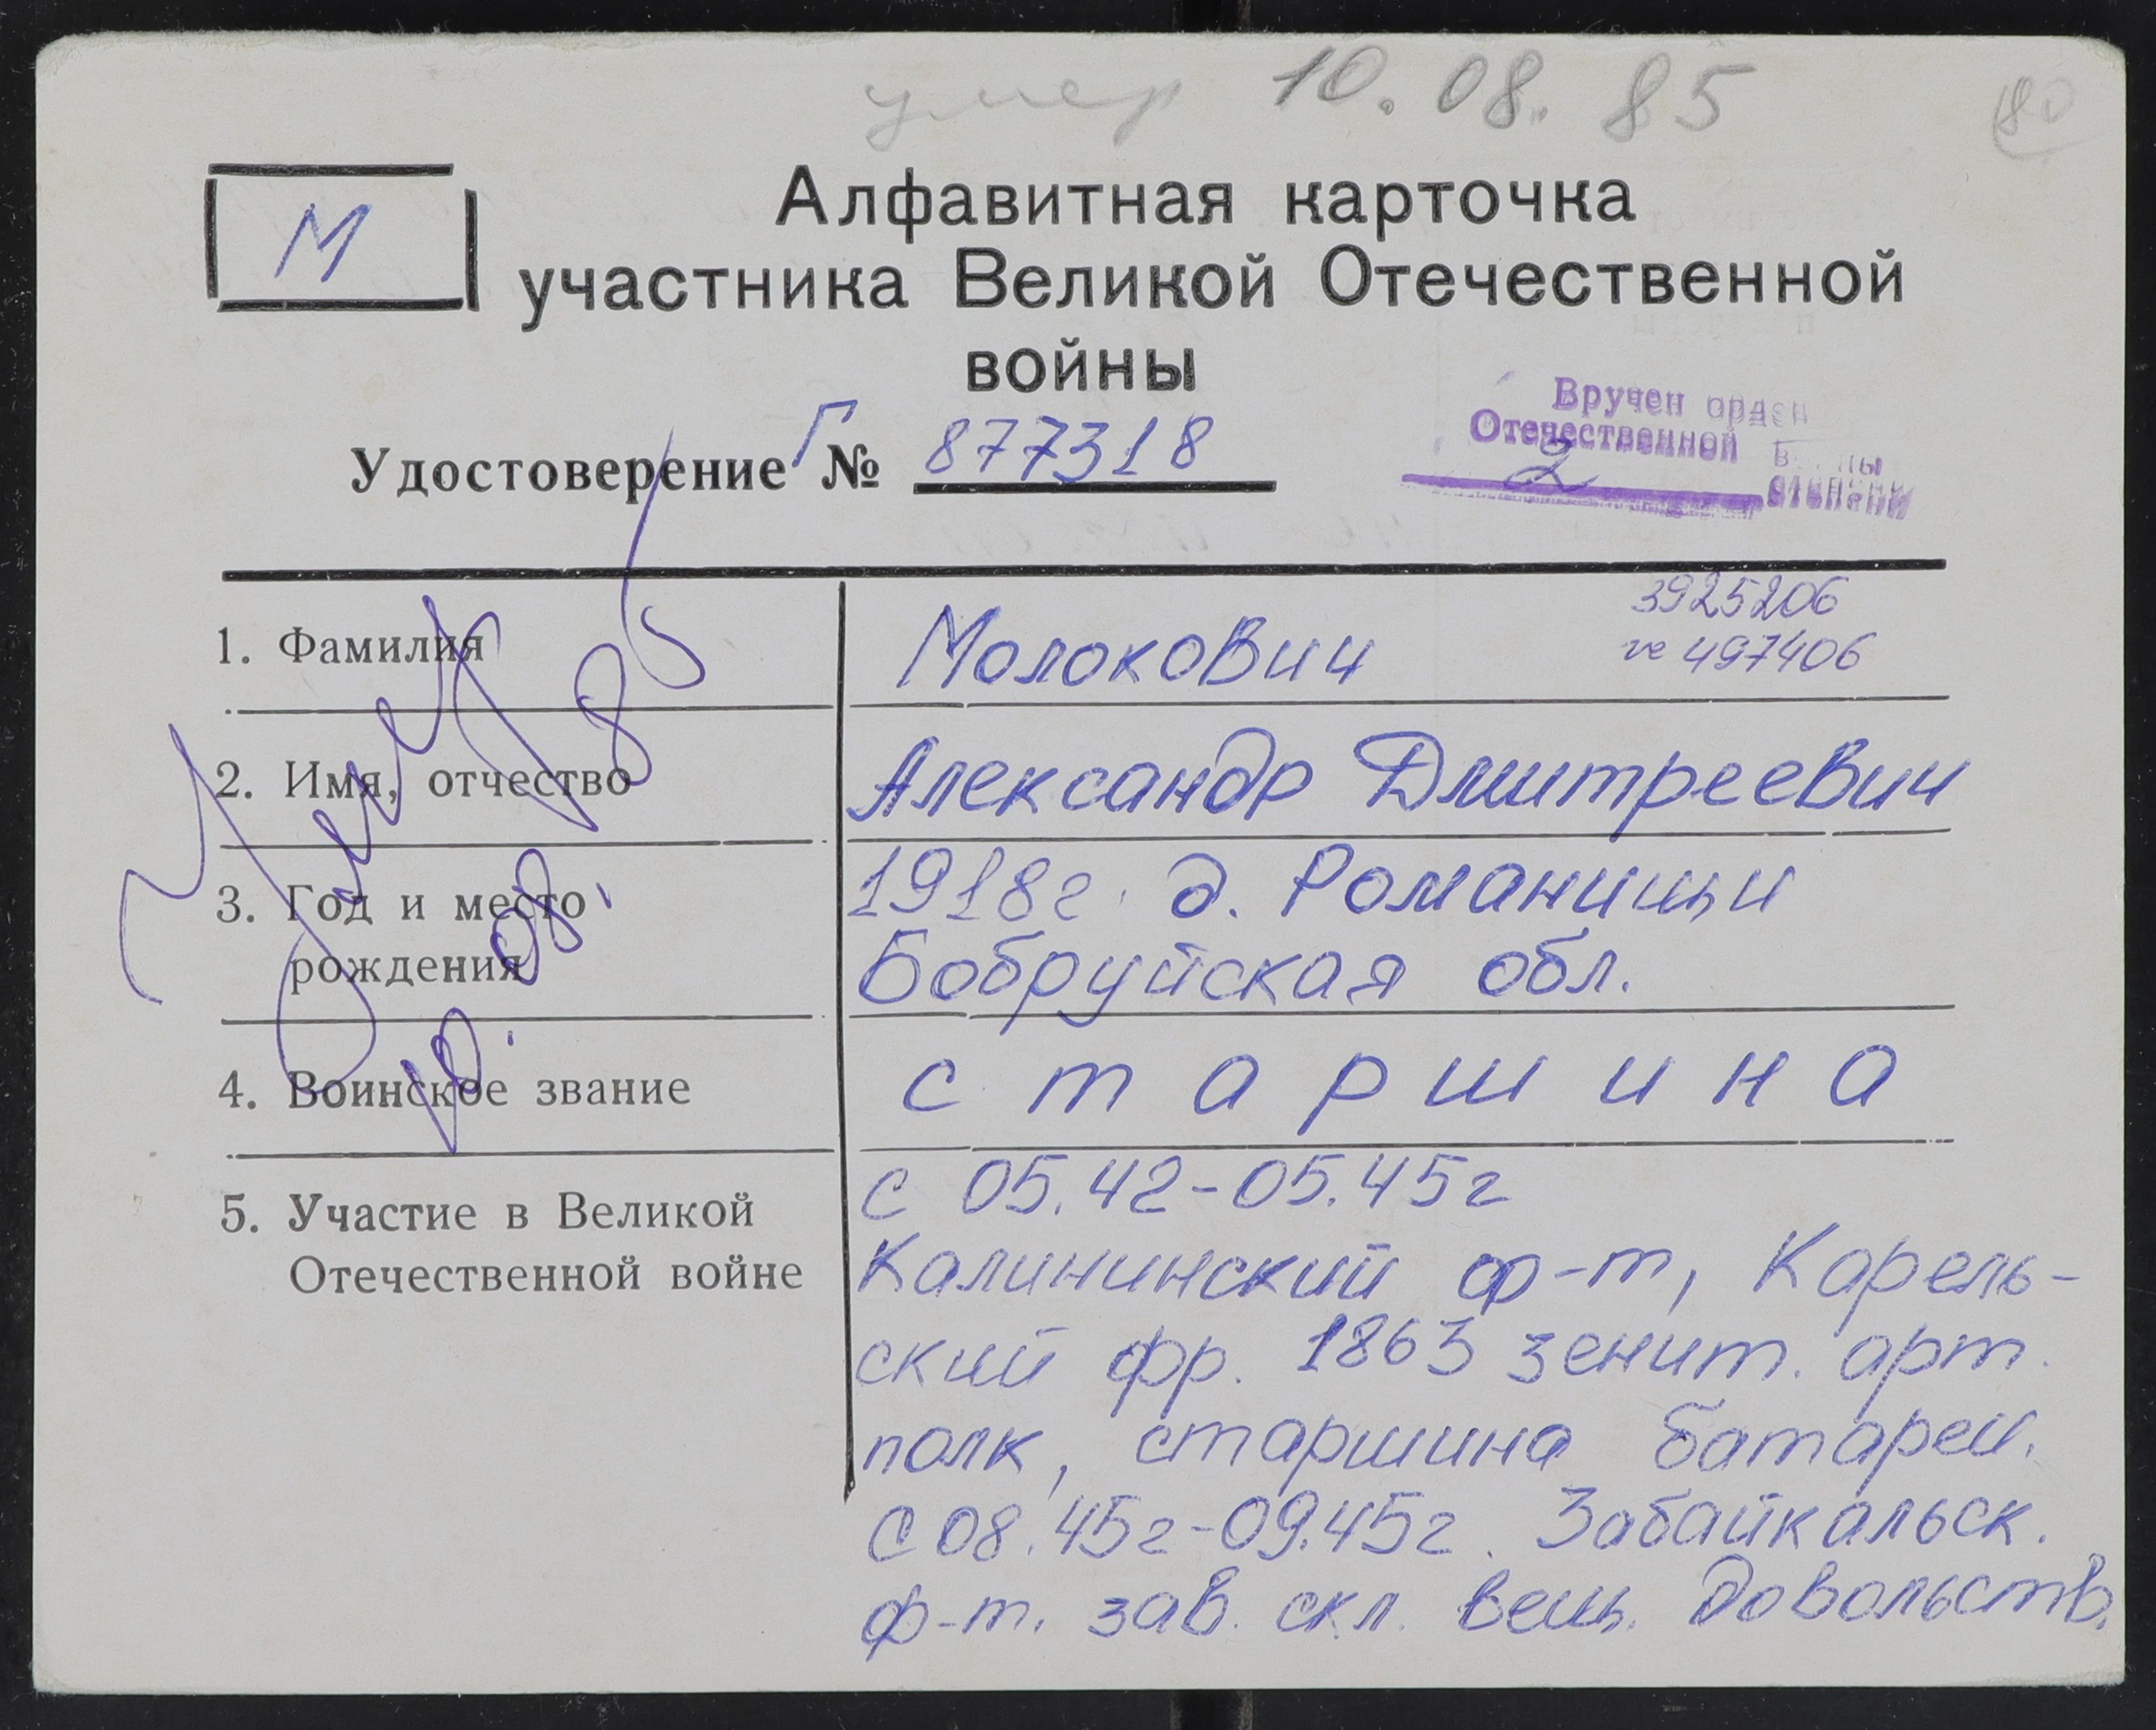 умер 10.08.85
80
М
Алфавитная карточка
участника Великой Отечественной
войны
Удостоверение Г № 877318
Вручен орден
Отечественной войны
2 степени
3925206
1. Фамилия Молокович
№ 497406
2. Имя, отчество Александр Дмитреевич
3. Год и место 1918г. д. Романищи
рождения Бобруйская обл.
4. Воинское звание старшина
Умер
10.08.85
с 05.42-05.45г
5. Участие в Великой
Отечественной войне Калининский ф-т, Карель-
ский фр. 1863 зенит. арт.
полк, старшина батареи.
С 08.45г-09.45г. Забайкальск.
ф-т. зав. скл. вещ. довольств.